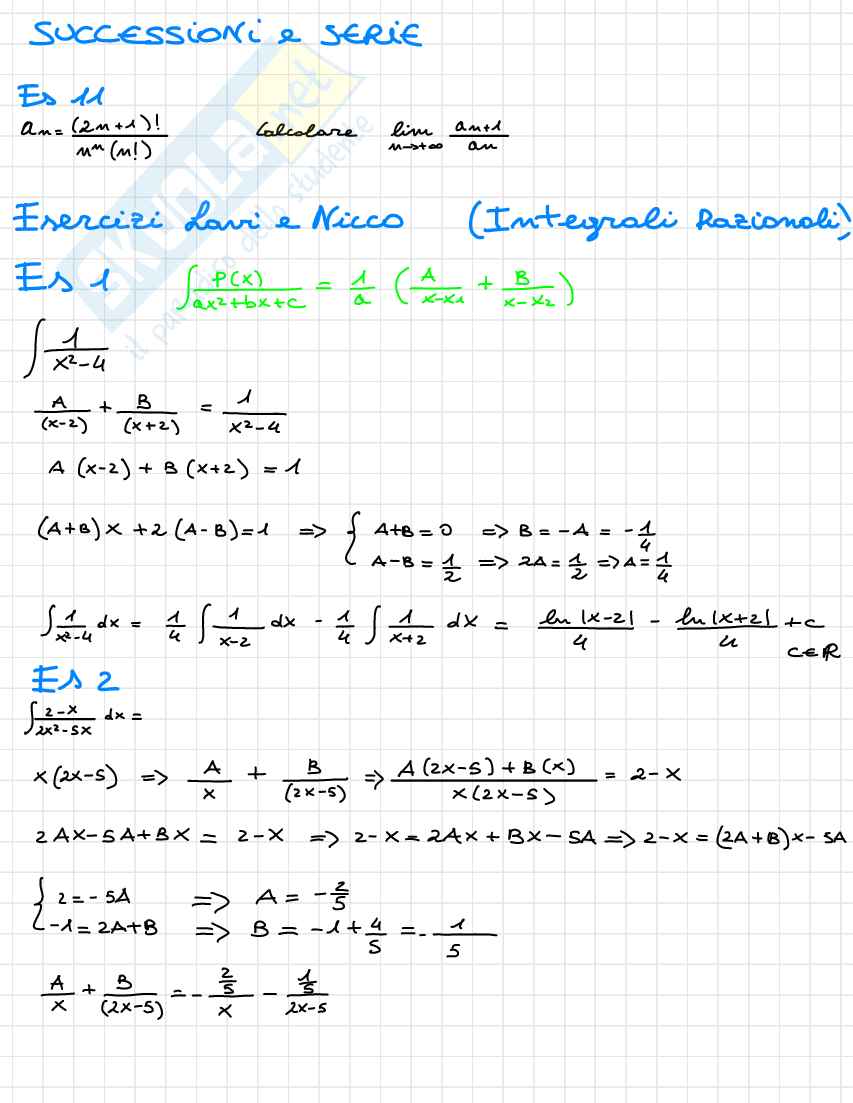 SUCCESSIONI e SERIE
Es 11
an = (2n+1)! / n^n (n!) Calcolare lim n→+∞ an+1 / an
Esercizi Lavi e Nicco (Integrali Razionali)
Es 1 ∫ P(x) / ax²+bx+c = 1/a ( A / x-x1 + B / x-x2 )
∫ 1 / x²-4
A / (x-2) + B / (x+2) = 1 / x²-4
A (x-2) + B (x+2) = 1
(A+B)x + 2(A-B) = 1 => { A+B = 0 => B = -A = -1/4
A-B = 1/2 => 2A = 1/2 => A = 1/4
∫ 1 / x²-4 dx = 1/4 ∫ 1 / x-2 dx - 1/4 ∫ 1 / x+2 dx = ln|x-2| / 4 - ln|x+2| / 4 + c
c∈ℝ
Es 2
∫ 2-x / 2x²-5x dx =
x(2x-5) => A / x + B / (2x-5) => A(2x-5) + B(x) / x(2x-5) = 2-x
2Ax-5A+Bx = 2-x => 2-x = 2Ax + Bx - 5A => 2-x = (2A+B)x - 5A
{ 2 = -5A => A = -2/5
-1 = 2A+B => B = -1 + 4/5 = -1/5
A / x + B / (2x-5) = - 2/5 / x - 1/5 / 2x-5
SKUOLA.net
il paradiso dello studente